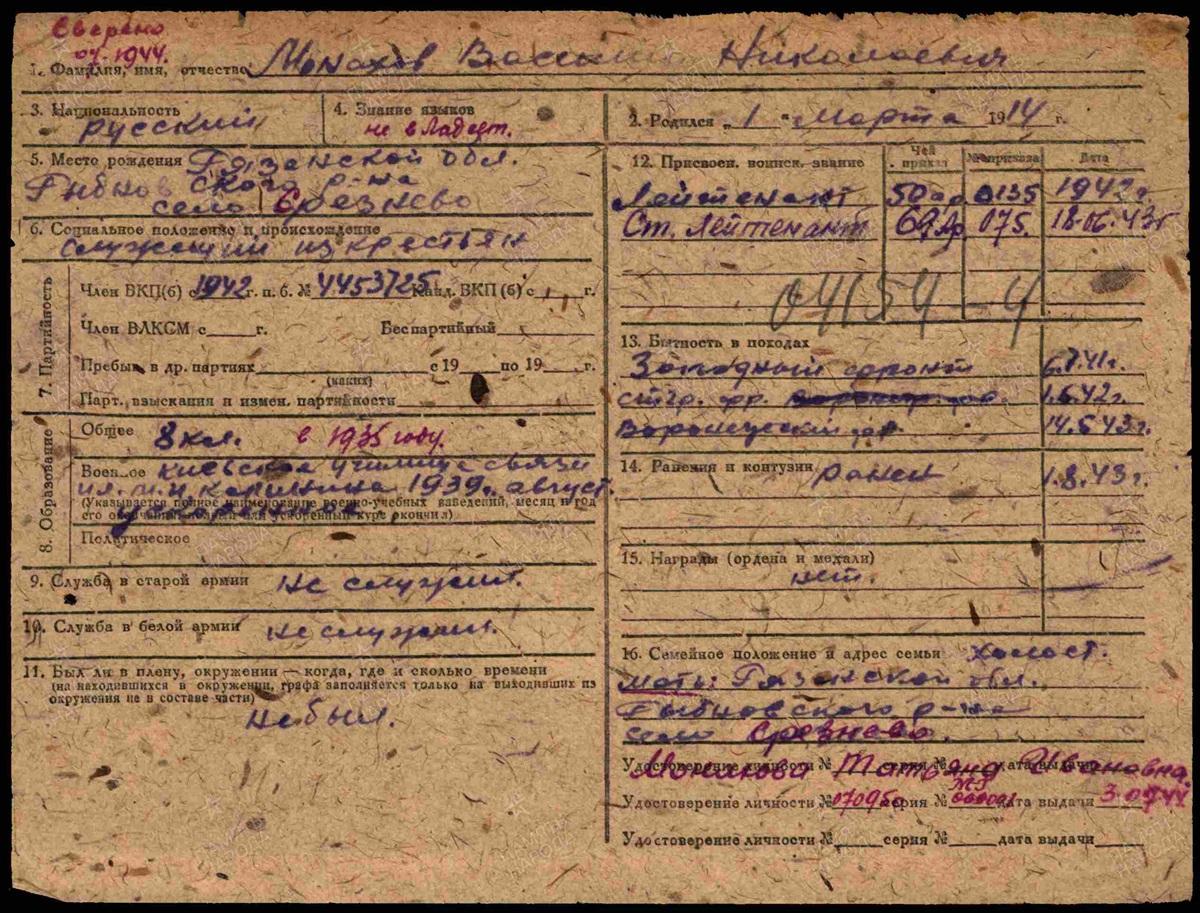 Сверено
07.1944.
1. Фамилия, имя, отчество Монахов Василий Николаевич
3. Национальность русский
4. Знание языков не владеет.
2. Родился „ 1 " Марта 1914 г.
5. Место рождения Рязанской обл.
Рыбновского р-на
село Срезнево
6. Социальное положение и происхождение
служащий из крестьян
7. Партийность
Член ВКП(б) с 1942 г. п. б. № 4453725 Канд. ВКП(б) с г.
Член ВЛКСМ с г. Беспартийный
Пребыв. в др. партиях с 19 по 19 г.
(каких)
Парт. взыскания и измен. партийности
8. Образование
Общее 8 кл. в 1935 году.
Военное Киевское училище связи
им. М.И. Калинина 1939 г. август.
(Указывается полное наименование военно-учебных заведений, месяц и год
его окончания, полный или ускоренный курс окончил)
Политическое
9. Служба в старой армии не служил.
10. Служба в белой армии не служил.
11. Был ли в плену, окружении — когда, где и сколько времени
(на находившихся в окружении, графа заполняется только на выходивших из
окружения не в составе части)
не был.
12. Присвоен. воинск. звание Чей приказ № приказа Дата
Лейтенант 50 ар 0135 1942 г.
Ст. Лейтенант 69 Ар 075. 18.06.43 г.
04154-4
13. Бытность в походах
Западный фронт 6.7.41 г.
стгр. фр. 1.6.42 г.
Воронежский фр. 14.5.43 г.
14. Ранения и контузии ранен 1.8.43 г.
15. Награды (ордена и медали)
нет.
16. Семейное положение и адрес семьи холост.
мать: Рязанской обл.
Рыбновского р-на
село Срезнево.
Монахова Татьяна Ивановна.
Удостоверение личности № серия № дата выдачи
Удостоверение личности № 070950 серия № дата выдачи
Удостоверение личности № серия № дата выдачи